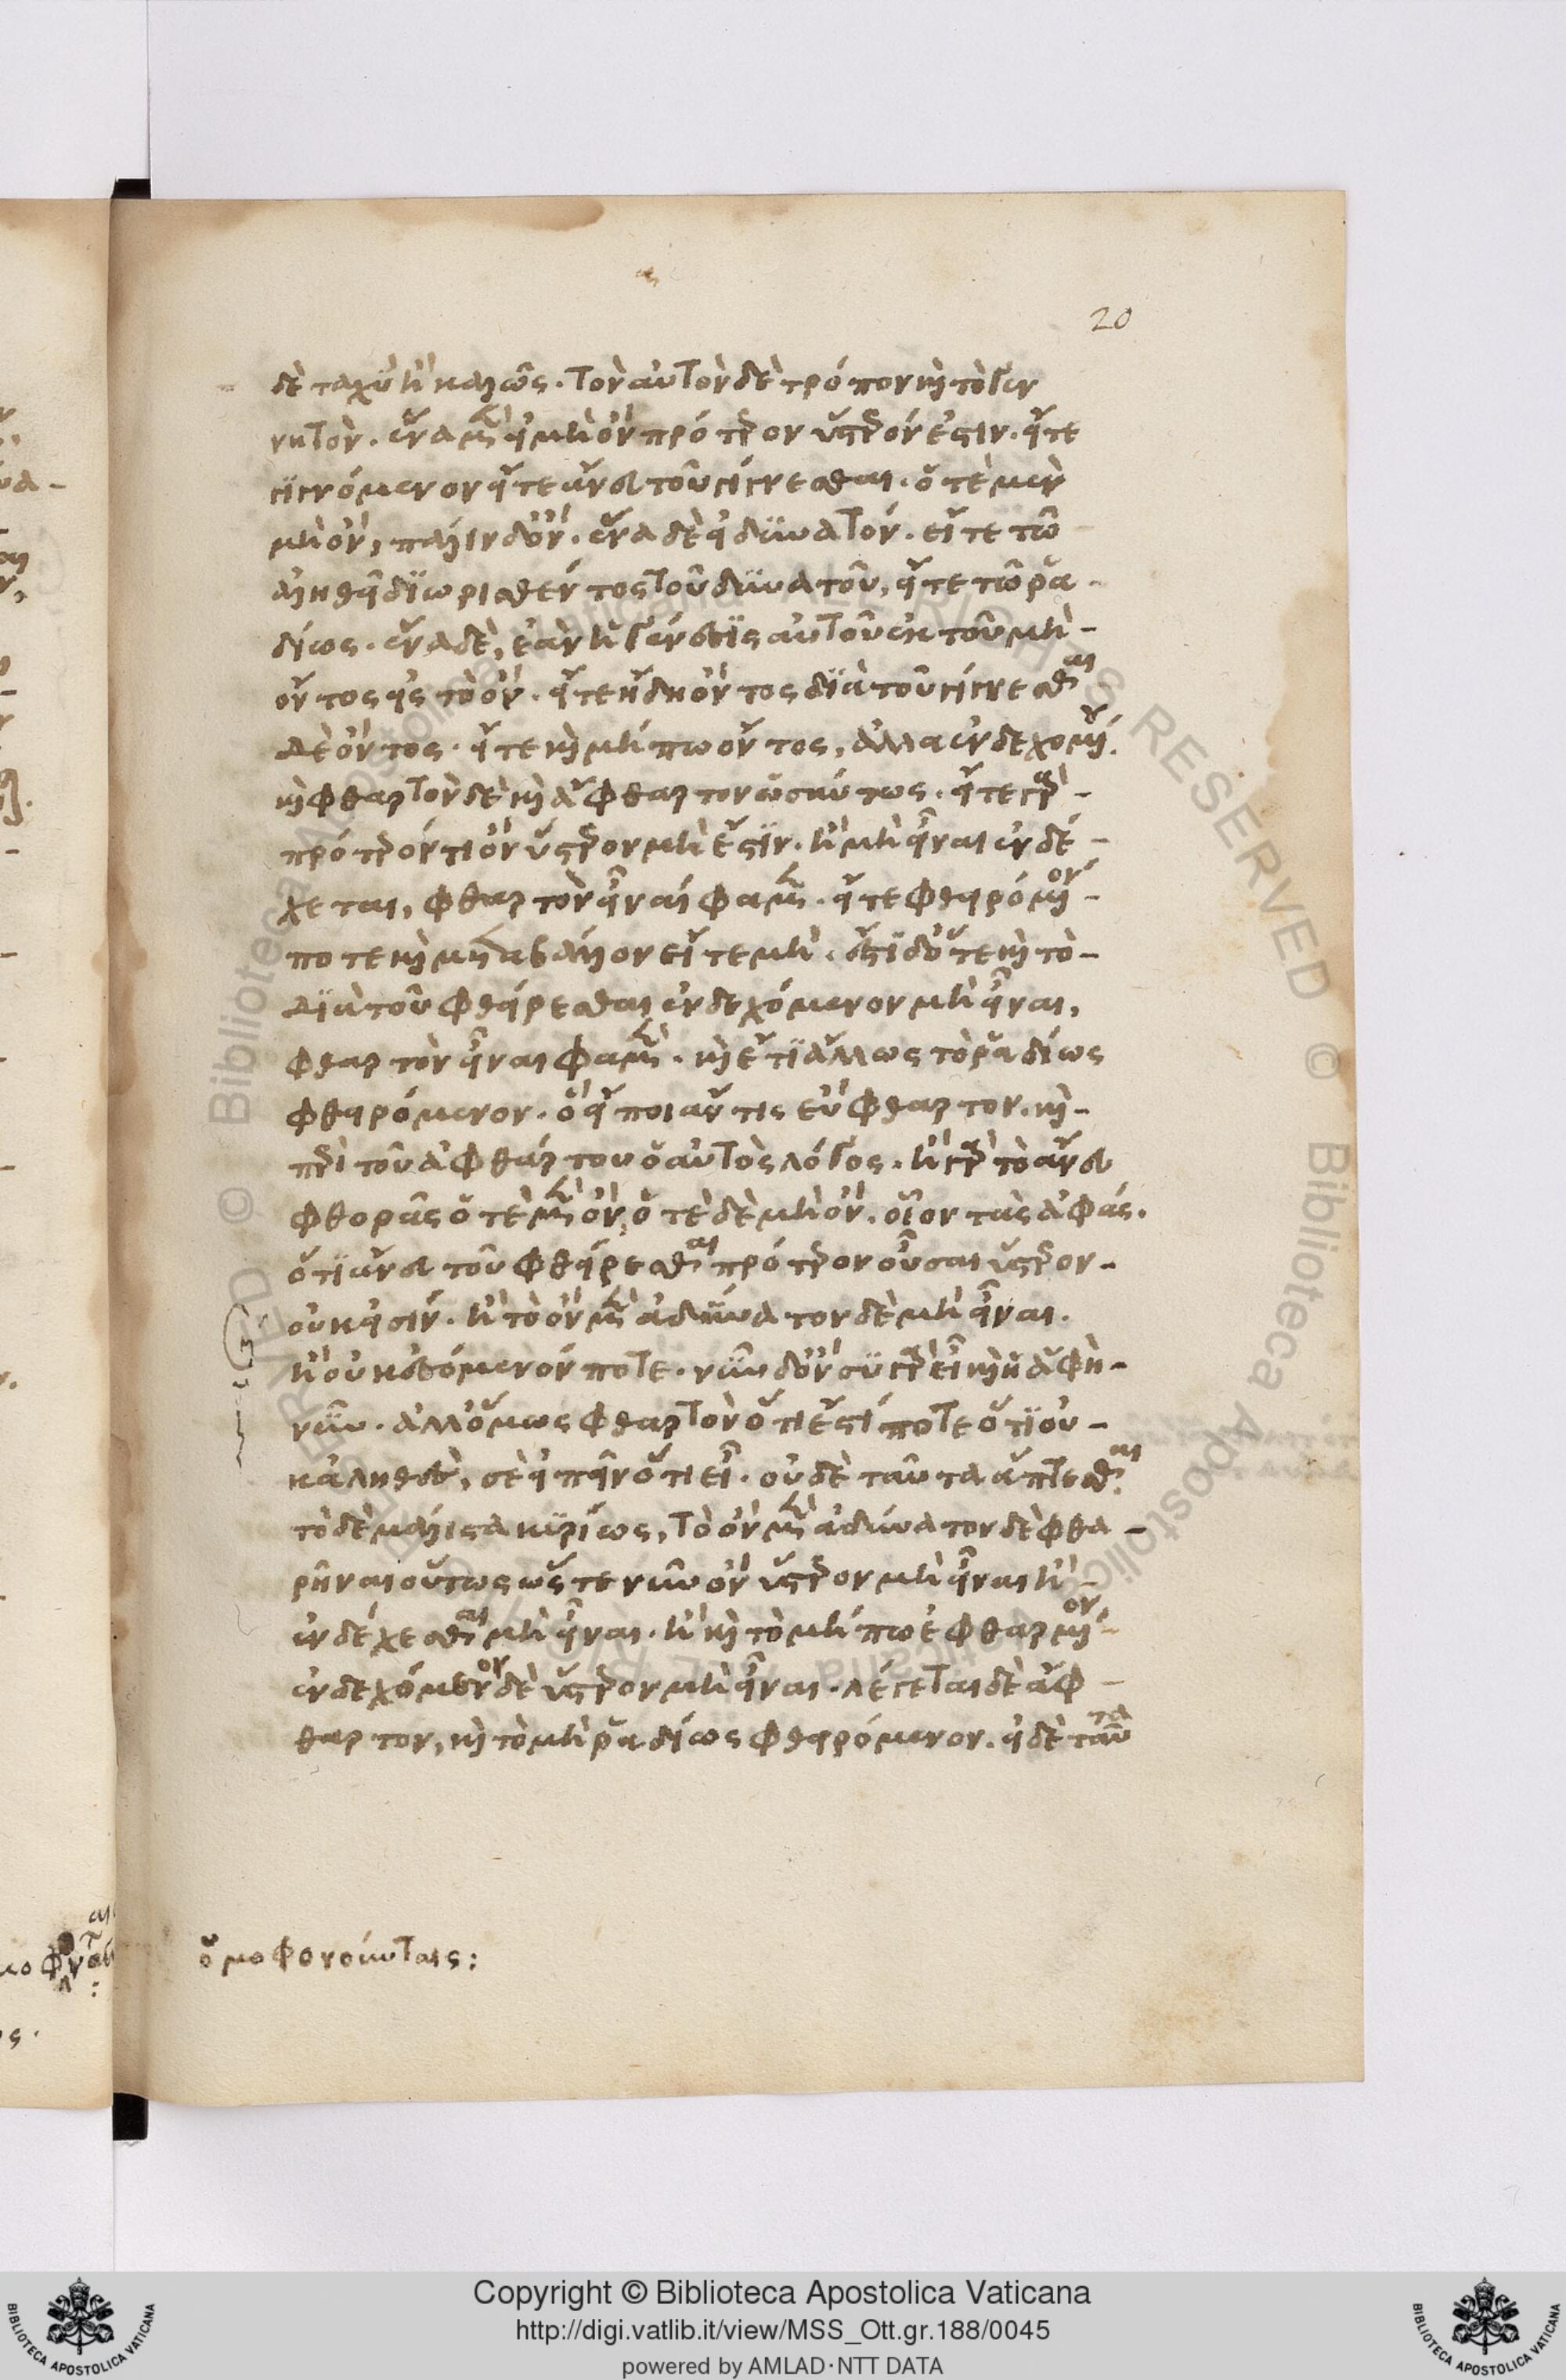 20
δὲ ταχὺ ἢ καλῶς. τὸν αὐτὸν δὲ τρόπον καὶ τὸ γεν
νητόν. ἕνα μὲν εἰ μὴ ὂν πρότερον ὕστερόν ἐστιν. εἴτε
γινόμενον εἴτε ἄνευ τοῦ γίνεσθαι. ὁτὲ μὲν
μὴ ὄν, πάλιν δ' ὄν. ἕνα δὲ εἰ δυνατόν. εἴτε τῶ
ἀληθεῖ διωρισθέντος τοῦ δυνατοῦ, εἴτε τῶ ῥα-
δίως. ἕνα δὲ, ἐὰν ἦ γένεσις αὐτοῦ ἐκ τοῦ μὴ-
ὄντος εἰς τὸ ὄν. εἴτε ἤδη ὄντος διὰ τοῦ γίνεσθαι
δὲ ὄντος. εἴτε καὶ μήπω ὄντος, ἀλλὰ ἐνδεχομένου.
καὶ φθαρτὸν δὲ καὶ ἄφθαρτον ὡσαύτως. εἴτε γὰρ-
πρότερόν τι ὂν ὕστερον μὴ ἔστιν. ἢ μὴ εἶναι ἐνδέ-
χεται, φθαρτὸν εἶναί φαμεν. εἴτε φθειρόμενον-
ποτε καὶ μεταβάλλον εἴτε μή. ἔστι δ' ὅτε καὶ τὸ-
διὰ τοῦ φθείρεσθαι ἐνδεχόμενον μὴ εἶναι,
φθαρτὸν εἶναι φαμεν. καὶ ἔτι ἄλλως τὸ ῥαδίως
φθειρόμενον. ὃ εἴποι ἄν τις εὔφθαρτον. καὶ-
περὶ τοῦ ἀφθάρτου ὁ αὐτὸς λόγος. ἢ γὰρ τὸ ἄνευ
φθορᾶς ὁτὲ μὲν ὄν, ὁτὲ δὲ μὴ ὄν. οἷον τὰς ἁφάς.
ὅτι ἄνευ τοῦ φθείρεσθαι πρότερον οὖσαι ὕστερον-
οὐκ εἰσίν. ἢ τὸ ὂν μὲν ἀδύνατον δὲ μὴ εἶναι.
ἢ οὐκ ἐσόμενόν ποτε. νῦν δ' ὄν σὺ γὰρ εἶ καὶ ἡ ἁφὴ-
νῦν. ἀλλ' ὅμως φθαρτὸν ὅτι ἐστί ποτε ὅτι οὐ-
κ ἀληθὲς, σὲ εἰπεῖν ὅτι εἶ. οὐδὲ ταῦτα ἅπτεσθαι.
τὸ δὲ μάλιστα κυρίως, τὸ ὂν μὲν ἀδύνατον δὲ φθα-
ρῆναι οὕτως ὥστε νῦν ὂν ὕστερον μὴ εἶναι ἢ-
ἐνδέχεσθαι μὴ εἶναι. ἢ καὶ τὸ μήπω ἐφθαρμένον-
ἐνδεχόμενον δὲ ὕστερον μὴ εἶναι. λέγεται δὲ ἄφ-
θαρτον, καὶ τὸ μὴ ῥαδίως φθειρόμενον. εἰ δὲ ταῦτα
ὁμοφονούνταις:
Copyright © Biblioteca Apostolica Vaticana
http://digi.vatlib.it/view/MSS_Ott.gr.188/0045
powered by AMLAD·NTT DATA